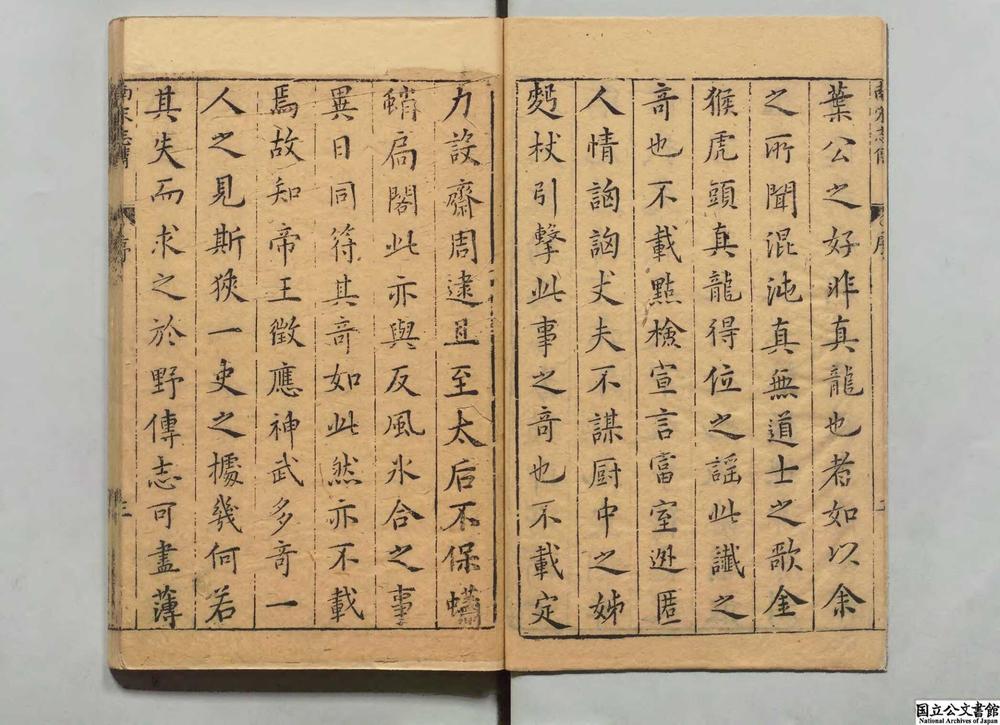 葉公之好非真龍也者如以余
之所聞混沌真無道士之歌金
猴虎頭真龍得位之謡此讖之
竒也不載點檢宣言富室逊匿
人情詾詾丈夫不謀厨中之姊
麪杖引擊此事之竒也不載定
力設齋周逮且至太后不保蠨
蛸扃閣此亦與反風氷合之事
異日同符其竒如此然亦不載
焉故知帝王徵應神武多竒一
人之見斯狹一史之據幾何若
其失而求之於野傳志可盡薄
南宋志傳
序
三
国立公文書館
National Archives of Japan